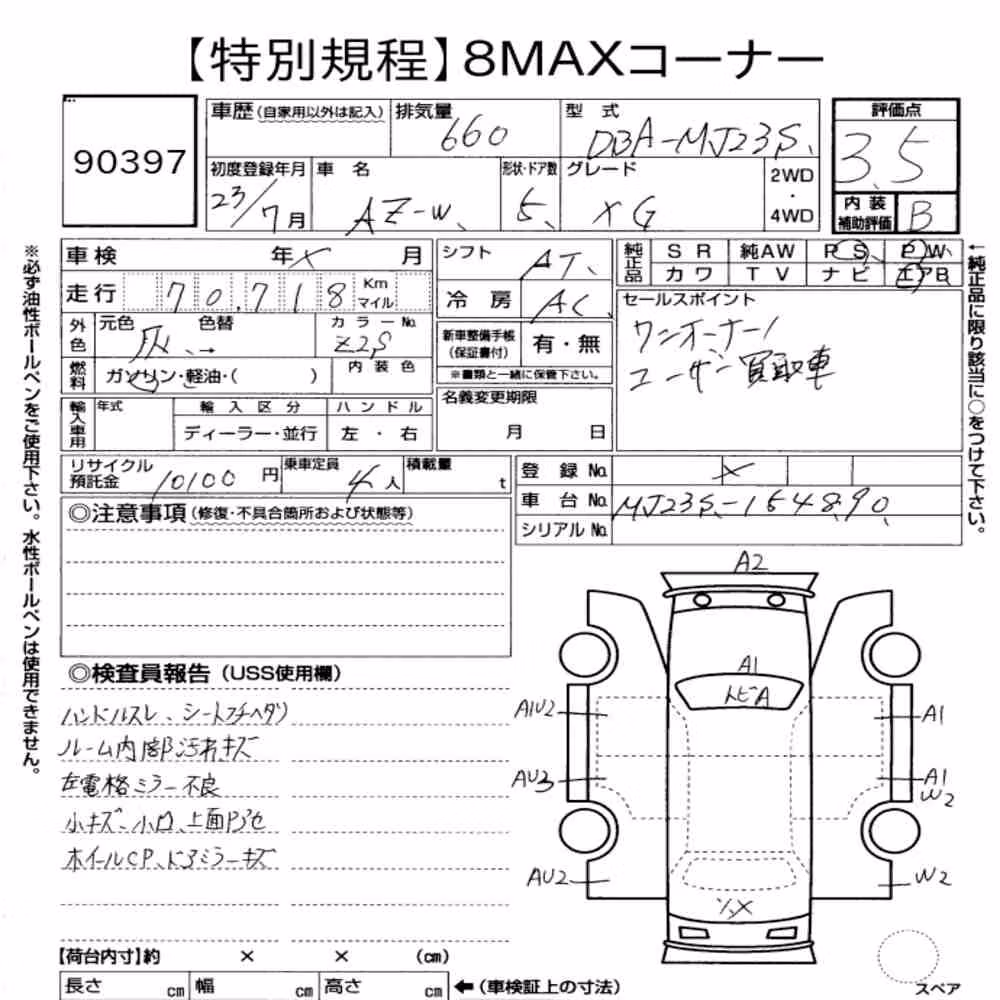 【特別規程】8MAXコーナー
90397
車歴(自家用以外は記入) 排気量 660 型式 DBA-MJ23S
評価点 3.5
初度登録年月 23/7月 車名 AZ-W 形状・ドア数 5 グレード XG 2WD・4WD
内装補助評価 B
車検 年 × 月
シフト AT
純正品 SR 純AW PS PW
カワ TV ナビ エアB
走行 70,718 Km マイル
冷房 AC
セールスポイント
ワンオーナー!
ユーザー買取車
外色 元色 灰 色替 → カラーNo. Z2S
新車整備手帳(保証書付) 有・無
※書類と一緒に保管下さい。
燃料 ガソリン・軽油・( ) 内装色
輸入車用 年式 輸入区分 ハンドル
ディーラー・並行 左・右
名義変更期限
月 日
リサイクル預託金 10100円 乗車定員 4人 積載量 t
登録No. ×
車台No. MJ23S-154890
シリアルNo.
◎注意事項(修復・不具合箇所および状態等)
◎検査員報告(USS使用欄)
ハンドルスレ、シートフチヘタリ
ルーム内部汚れキズ
左電格ミラー不良
小キズ、小凹、上面
ホイールCP、ドアミラーキズ
A2
A1
トビA
A1U2
A1
AU3
A1
W2
AU2
W2
※必ず油性ボールペンをご使用下さい。水性ボールペンは使用できません。
←純正品に限り該当に○をつけて下さい。
【荷台内寸】約 × × (cm)
長さ cm 幅 cm 高さ cm ←(車検証上の寸法)
スペア